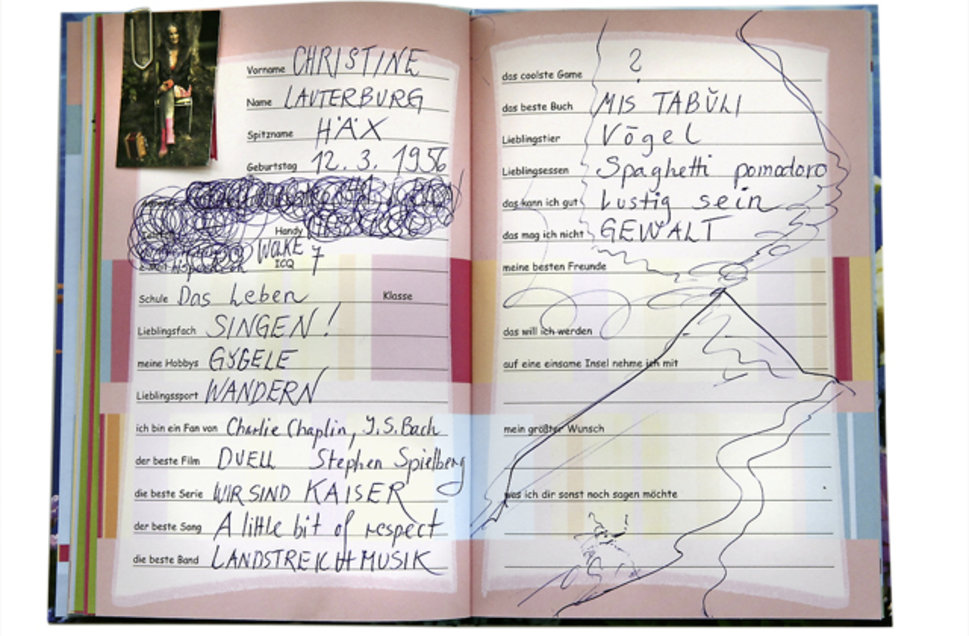 Vorname CHRISTINE
Name LAUTERBURG
Spitzname HÄX
Geburtstag 12. 3. 1956
Handy
ICQ 7
Schule Das Leben Klasse
Lieblingsfach SINGEN!
meine Hobbys GYGELE
Lieblingssport WANDERN
ich bin ein Fan von Charlie Chaplin, J.S. Bach
der beste Film DUELL Stephen Spielberg
die beste Serie WIR SIND KAISER
der beste Song A little bit of respect
die beste Band LANDSTREICHMUSIK
das coolste Game ?
das beste Buch MIS TABŬLI
Lieblingstier Vögel
Lieblingsessen Spaghetti pomodoro
das kann ich gut lustig sein
das mag ich nicht GEWALT
meine besten Freunde
das will ich werden
auf eine einsame Insel nehme ich mit
mein größter Wunsch
was ich dir sonst noch sagen möchte